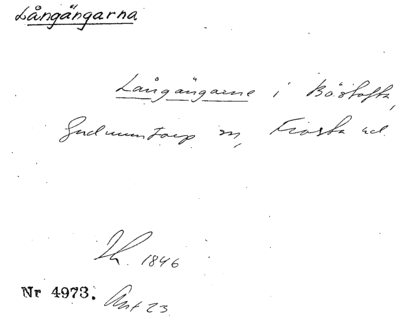 Långängarna
Långängarne i Böstofta,
Gudmuntorp sn, Frosta hd.
1846
Nr 4973. Ant 23